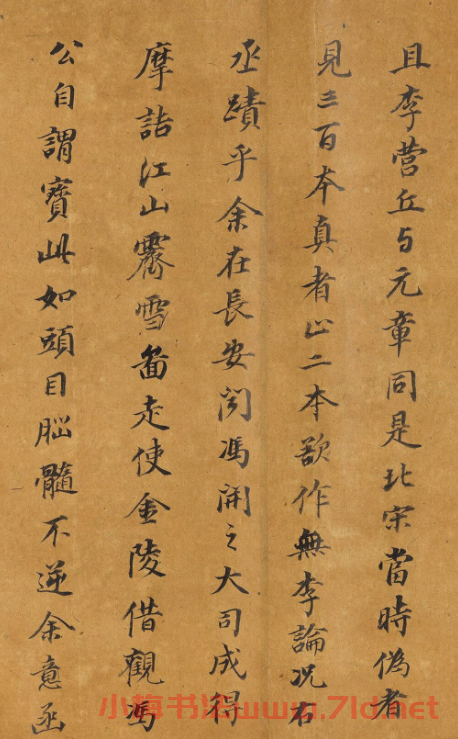 且李营丘与元章同是北宋當時偽者
見三百本真者止二本欲作無李論况右
丞蹟乎余在長安聞馮開之大司成得
摩詰江山霽雪啚走使金陵借觀馮
公自謂寶此如頭目脳髓不逆余意函
小梅书法www.71d.net